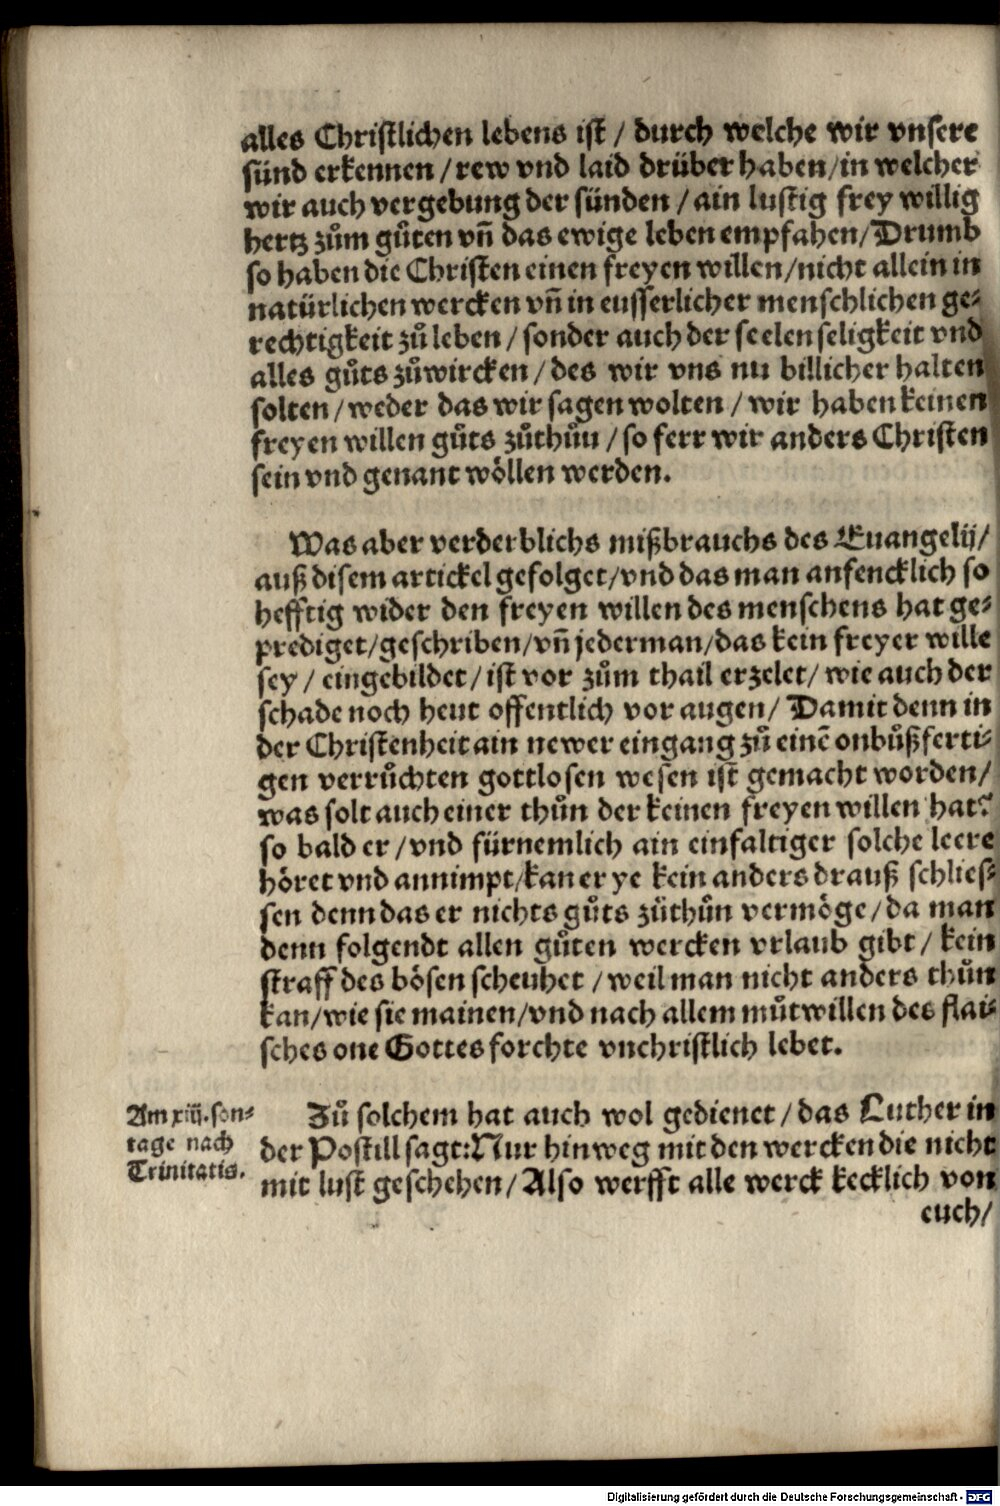 alles Christlichen lebens ist / durch welche wir vnsere
sünd erkennen / rew vnd laid drüber haben/in welcher
wir auch vergebung der sünden / ain lustig frey willig
hertz zům gůten vñ das ewige leben empfahen/Drumb
so haben die Christen einen freyen willen/nicht allein in
natürlichen wercken vñ in eusserlicher menschlichen ge⸗
rechtigkeit zů leben / sonder auch der seelen seligkeit vnd
alles gůts zůwircken / des wir vns nu billicher halten
solten / weder das wir sagen wolten / wir haben keinen
freyen willen gůts zůthůn / so ferr wir anders Christen
sein vnd genant wöllen werden.
Was aber verderblichs mißbrauchs des Euangelij/
auß disem artickel gefolget/vnd das man anfencklich so
hefftig wider den freyen willen des menschens hat ge⸗
prediget/geschriben/vñ jederman/das kein freyer wille
sey / eingebildet / ist vor zům thail erzelet/ wie auch der
schade noch heut offentlich vor augen/ Damit denn in
der Christenheit ain newer eingang zů einẽ onbůßferti⸗
gen verrůchten gottlosen wesen ist gemacht worden/
was solt auch einer thůn der keinen freyen willen hat?
so bald er / vnd fürnemlich ain einfaltiger solche leere
höret vnd annimpt/kan er ye kein anders drauß schlies⸗
sen denn das er nichts gůts zůthůn vermöge / da man
denn folgendt allen gůten wercken vrlaub gibt / kein
straff des bösen scheuhet / weil man nicht anders thůn
kan/wie sie mainen/vnd nach allem můtwillen des flai⸗
sches one Gottes forchte vnchristlich lebet.
Am xiij. son⸗
tage nach
Trinitatis.
Zů solchem hat auch wol gedienet / das Luther in
der Postill sagt: Nur hinweg mit den wercken die nicht
mit lust geschehen / Also werfft alle werck kecklich von
euch/
Digitalisierung gefördert durch die Deutsche Forschungsgemeinschaft - DFG